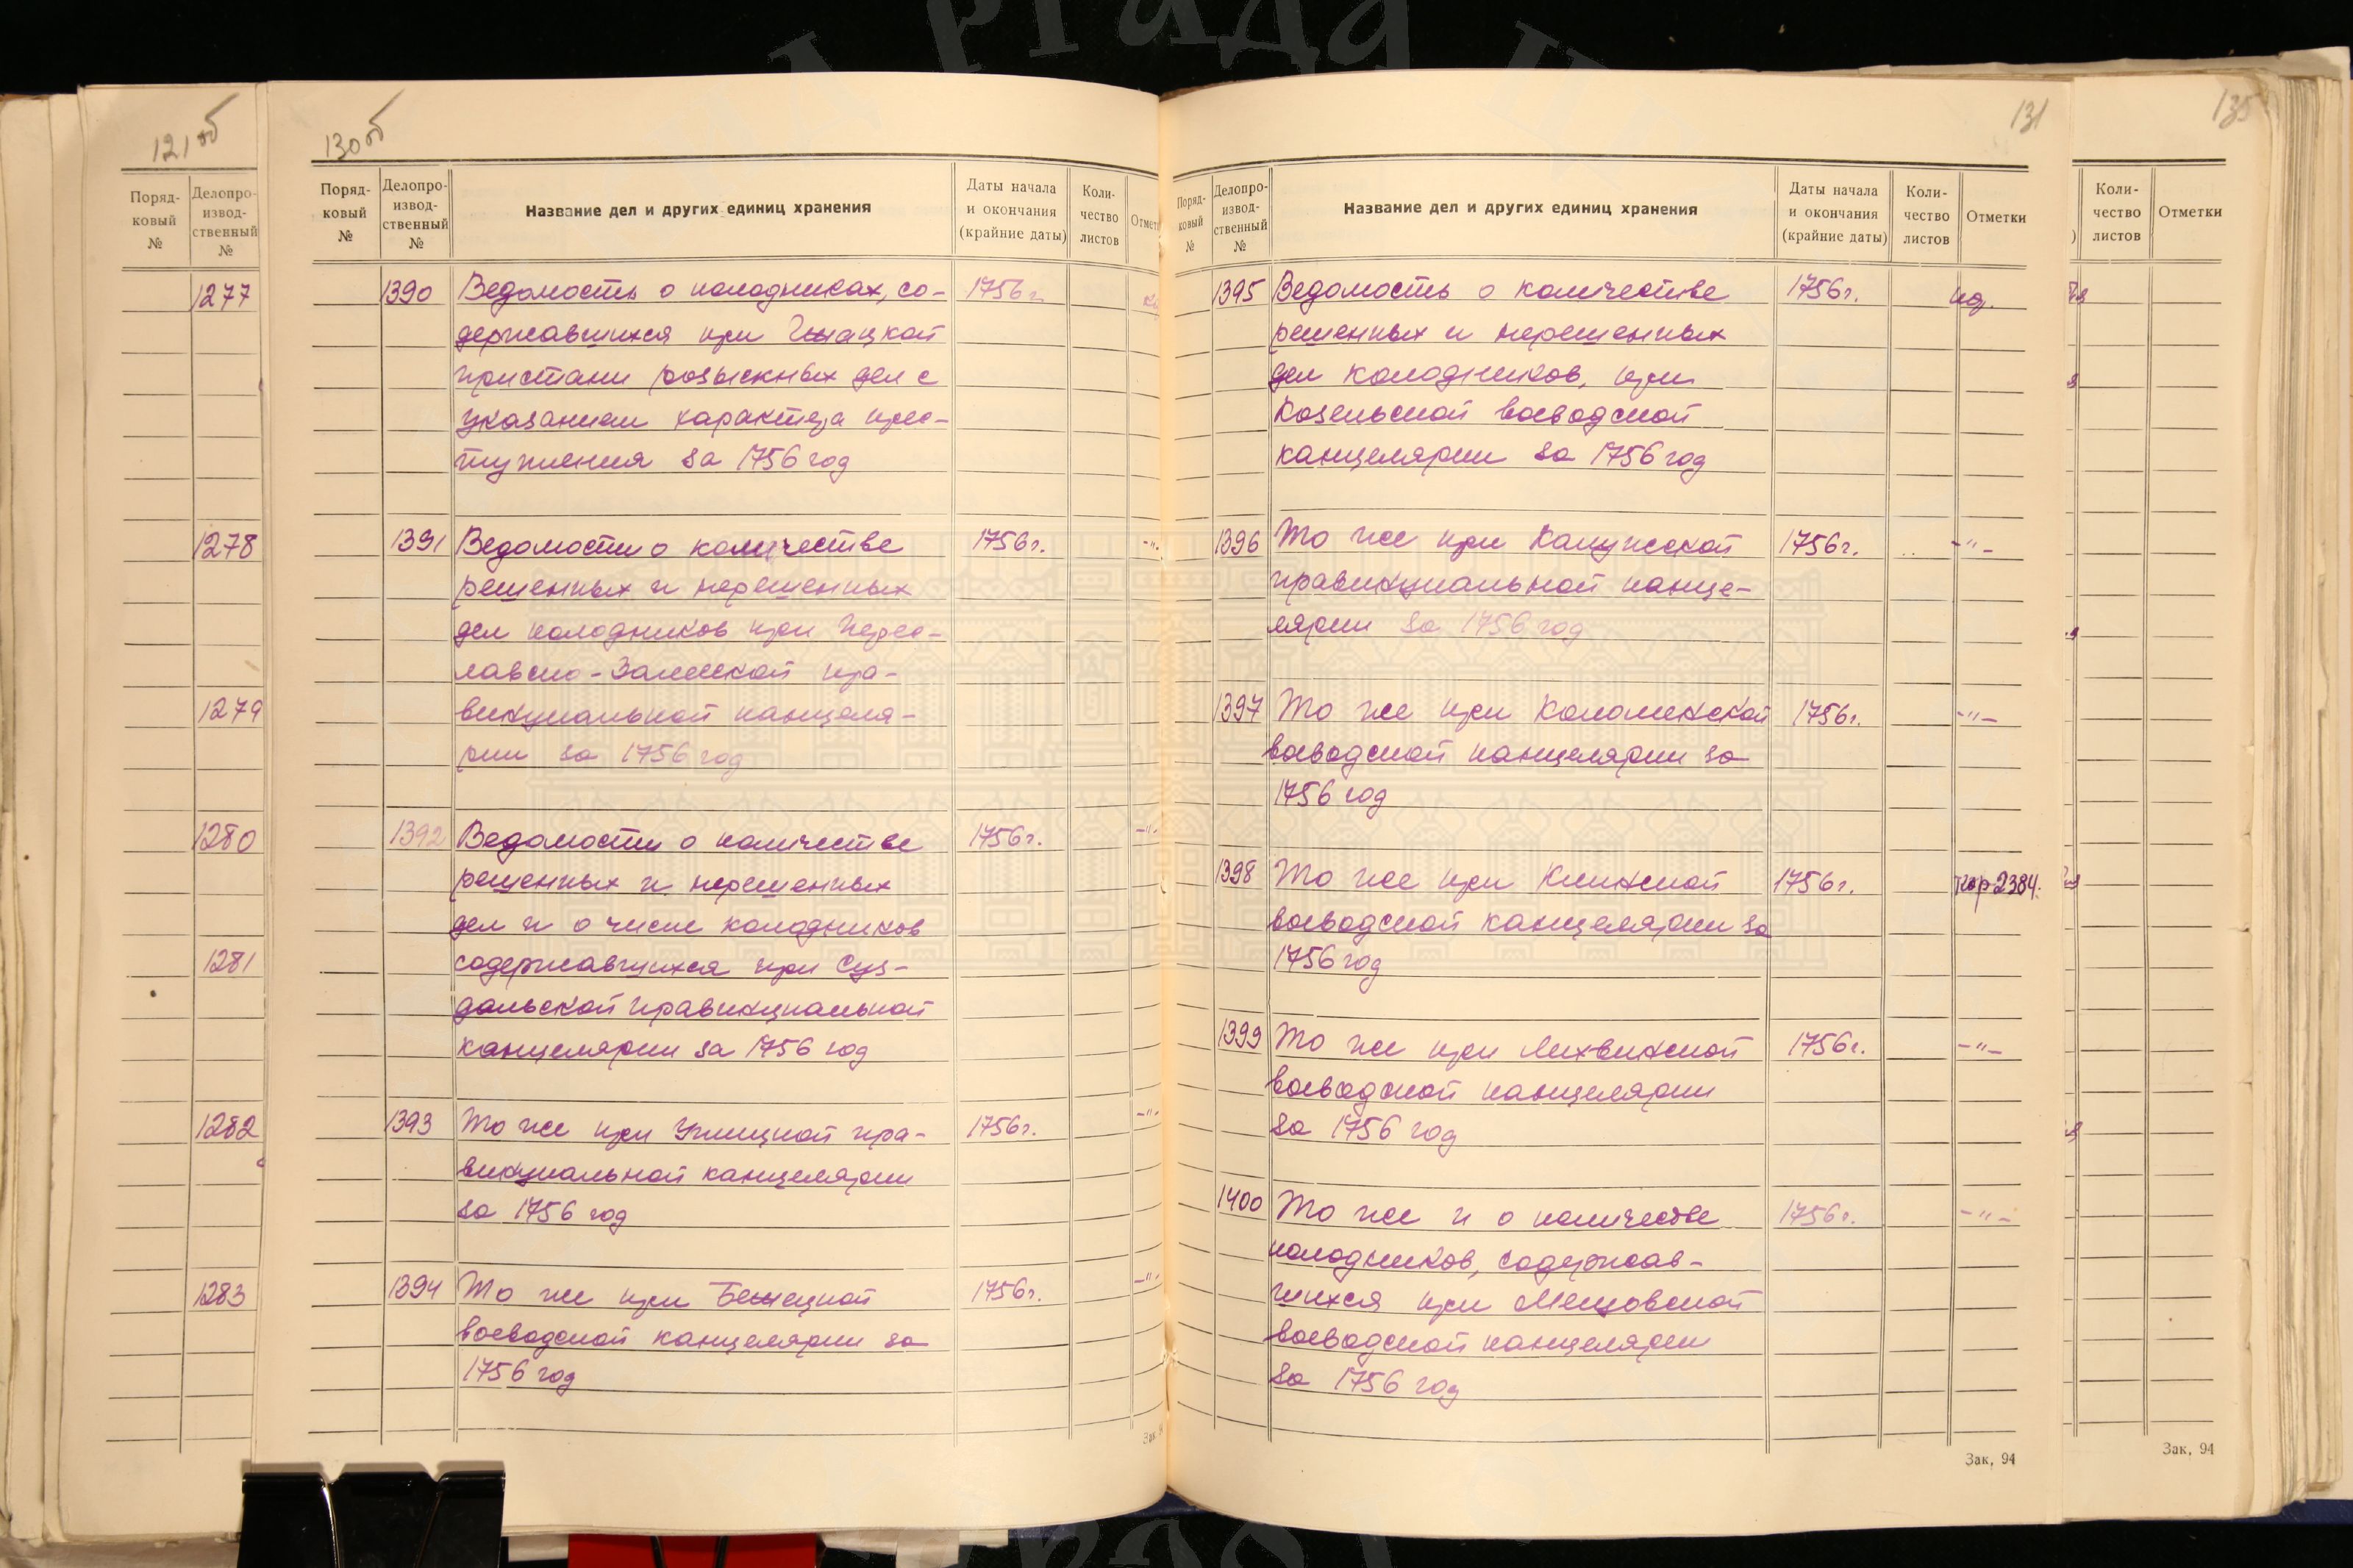 121об
Поряд-
ковый
№
Делопро-
извод-
ственный
№
1277
1278
1279
1280
1281
1282
1283
130об
Поряд-
ковый
№
Делопро-
извод-
ственный
№
Название дел и других единиц хранения
Даты начала
и окончания
(крайние даты)
Коли-
чество
листов
1390 Ведомость о колодниках, со- 1756 г.
державшихся при Гжацкой
пристани розыскных дел с
указанием характера прес-
тупления за 1756 год
1391 Ведомости о количестве 1756 г. -"-
решенных и нерешенных
дел колодников при Перес-
лавско-Залесской про-
винциальной канцеля-
рии за 1756 год
1392 Ведомости о количестве 1756 г. -"-
решенных и нерешенных
дел и о числе колодников
содержавшихся при Суз-
дальской провинциальной
канцелярии за 1756 год
1393 То же при Углицкой про- 1756 г. -"-
винциальной канцелярии
за 1756 год
1394 То же при Бежецкой 1756 г. -"-
воеводской канцелярии за
1756 год
131
Поряд-
ковый
№
Делопро-
извод-
ственный
№
Название дел и других единиц хранения
Даты начала
и окончания
(крайние даты)
Коли-
чество
листов
Отметки
1395 Ведомость о количестве 1756 г.
решенных и нерешенных
дел колодников, при
Козельской воеводской
канцелярии за 1756 год
1396 То же при Калужской 1756 г. -"-
провинциальной канце-
лярии за 1756 год
1397 То же при Коломенской 1756 г. -"-
воеводской канцелярии за
1756 год
1398 То же при Клинской 1756 г. кор 2384.
воеводской канцелярии за
1756 год
1399 То же при Лихвинской 1756 г. -"-
воеводской канцелярии
за 1756 год
1400 То же и о количестве 1756 г. -"-
колодников, содержав-
шихся при Мещовской
воеводской канцелярии
за 1756 год
Зак. 94
135
Коли-
чество
листов
Отметки
Зак. 94